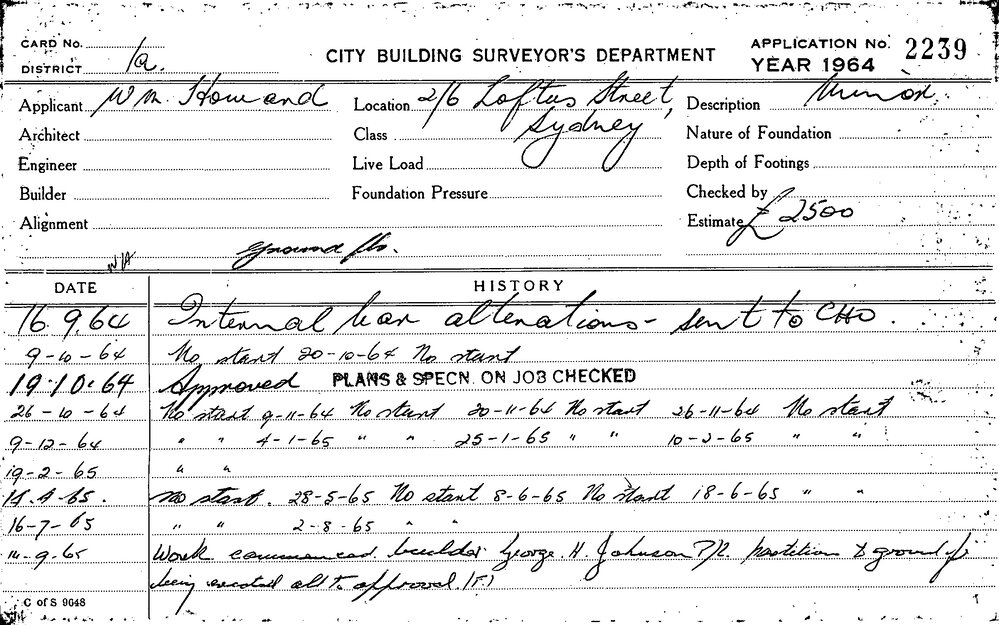 CARD No.
DISTRICT 1a.
CITY BUILDING SURVEYOR'S DEPARTMENT
APPLICATION No. 2239
YEAR 1964
Applicant Wm. Howard Location 2/6 Loftus Street, Description Minor.
Sydney
Architect Class Nature of Foundation
Engineer Live Load Depth of Footings
Builder Foundation Pressure Checked by
Alignment Estimate £2500
ground flr.
N/A
DATE HISTORY
16.9.64 Internal bar alterations - sent to CHO.
9-10-64 No start 20-10-64 No start
19.10.64 Approved PLANS & SPECN. ON JOB CHECKED
26-10-64 No start 9-11-64 No start 20-11-64 No start 26-11-64 No start
9-12-64 " " 4-1-65 " " 25-1-65 " " 10-2-65 " "
19-2-65 " "
No start. 28-5-65 No start 8-6-65 No start 18-6-65 " "
16-7-65 " " 2-8-65 " "
9.65 Work commenced. builder George H. Johnson P/L. partition & ground
being erected all to approval.
C of S 9048